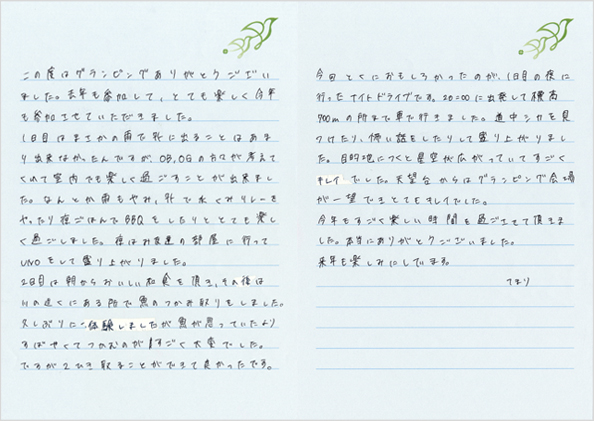 この度はグランピングありがとうございい
ました。去年も参加して、とても楽しく今年
も参加させていただきました。
1日目はまさかの雨で外に出ることはあま
り出来なかったんですが、OB、OGの方々が考えて
くれて室内でも楽しく過ごすことが出来まし
た。なんとか雨もやみ、外で水くみリレーを
やったり夜ごはんでBBQをしたりととても楽し
く過ごしました。夜はお友達の部屋に行って
UNOをして盛り上がりました。
2日目は朝からおいしい和食を頂き、その後は
川の近くにある所で魚のつかみ取りをしました。
久しぶりに体験しましたが魚が思っていたより
すばやくてつかむのがすごく大変でした。
ですが2ひき取ることができて良かったです。
今回とくにおもしろかったのが、1日目の夜に
行ったナイトドライブです。20:00に出発して標高
900mの所まで車で行きました。道中シカを見
つけたり、怖い話をしたりして盛り上がりまし
た。目的地につくと星空が広がっていてすごく
キレイでした。天望台からはグランピング会場
が一望できてとてもキレイでした。
今年もすごく楽しい時間を過ごせて頂きま
した。本当にありがとうございました。
来年も楽しみにしています。
てまり